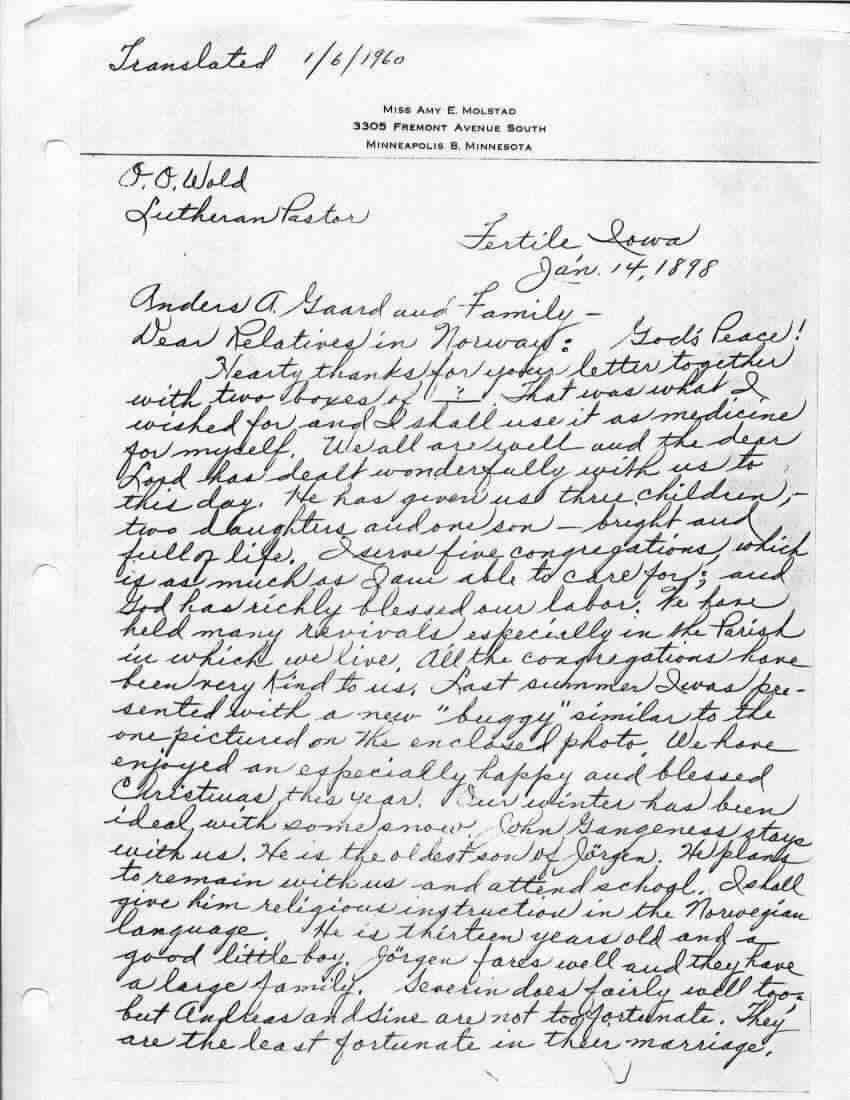 Translated 1/6/1960
MISS AMY E. MOLSTAD
3305 FREMONT AVENUE SOUTH
MINNEAPOLIS 8, MINNESOTA
O. O. Wold
Lutheran Pastor
Fertile Iowa
Jan. 14, 1898
Anders A. Gaard and Family –
Dear Relatives in Norway: God's Peace!
Hearty thanks for your letter together
with two boxes of ? That was what I
wished for and I shall use it as medicine
for myself. We all are well and the dear
Lord has dealt wonderfully with us to
this day. He has given us three children,–
two daughters and one son – bright and
full of life. I serve five congregations, which
is as much as I am able to care for; and
God has richly blessed our labor. We have
held many revivals especially in the Parish
in which we live. All the congregations have
been very kind to us. Last summer I was pre-
sented with a new "buggy" similar to the
one pictured on the enclosed photo. We have
enjoyed an especially happy and blessed
Christmas this year. Our winter has been
ideal with some snow. John Gangeness stays
with us. He is the oldest son of Jörgen. He plans
to remain with us and attend school. I shall
give him religious instruction in the Norwegian
language. He is thirteen years old and a
good little boy. Jörgen fares well and they have
a large family. Severin does fairly well too-
but Andreas and Sine are not too fortunate. They
are the least fortunate in their marriage.